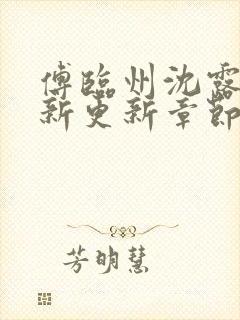 傅臨州沈露
新更新章節
芳明慧